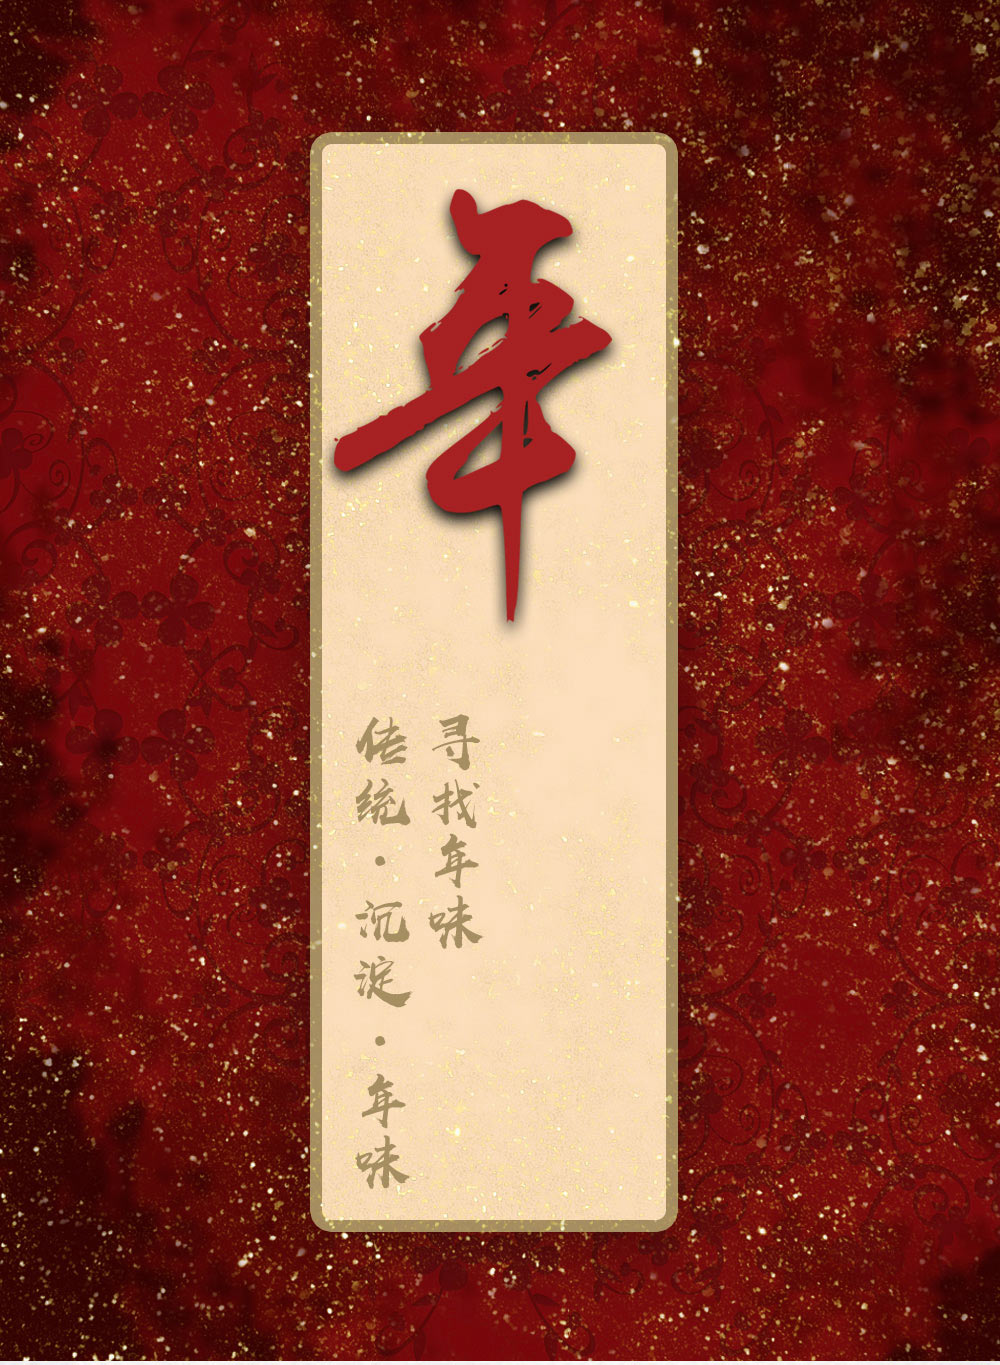 年
寻找年味
传统·沉淀·年味